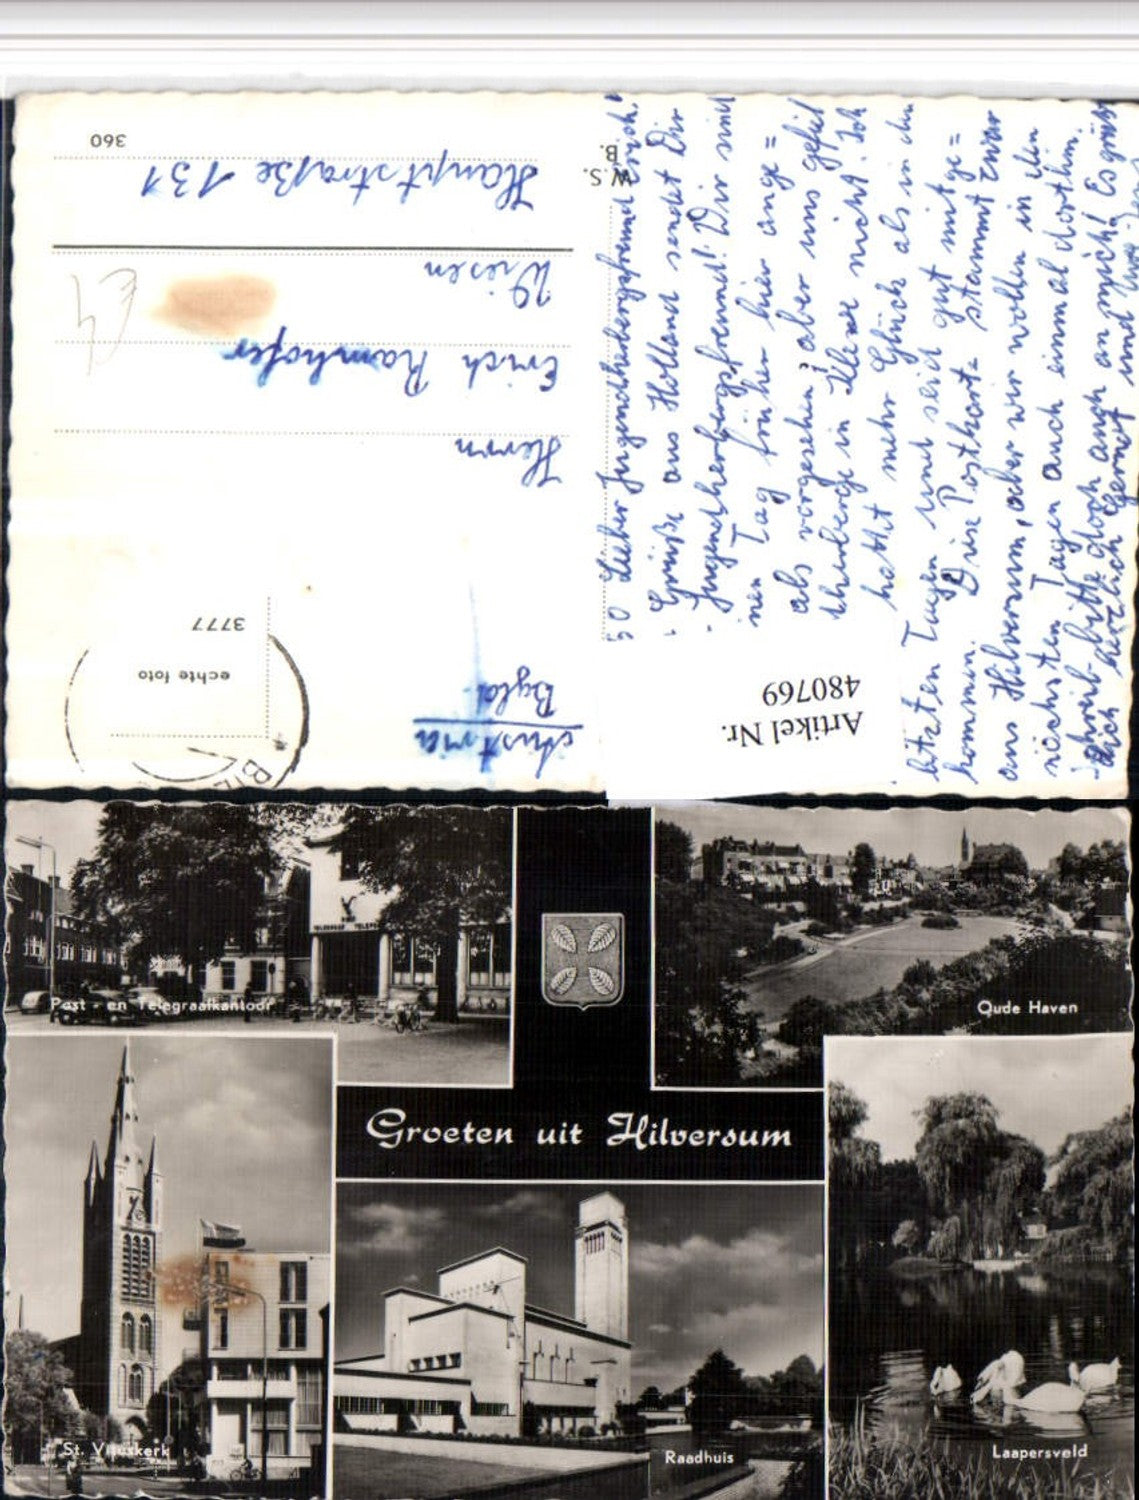 360
Hauptstraße 131
Wiesen
Erich Ramhofer
Herrn
3777
echte foto
Bgld.
Austria
W.S.
B.
Artikel Nr.
480769
Lieber Jugendherbergsfreund Erich!
Grüße aus Holland sendet Dir
Jugendherbergsfreund! Wir sind
nen Tag früher hier ange=
als vorgesehen, aber uns gefiel
in Kleve nicht. Ich
mehr Glück als in den
letzten Tagen und seid gut mitge=
kommen. Diese Postkarte stammt zwar
aus Hilversum, aber wir wollen in den
nächsten Tagen auch einmal dorthin.
bitte doch auch an mich! Es grüßt
Dich herzlich Gernot und
Post - en Telegraafkantoor
Oude Haven
Groeten uit Hilversum
St. Vituskerk
Raadhuis
Laapersveld